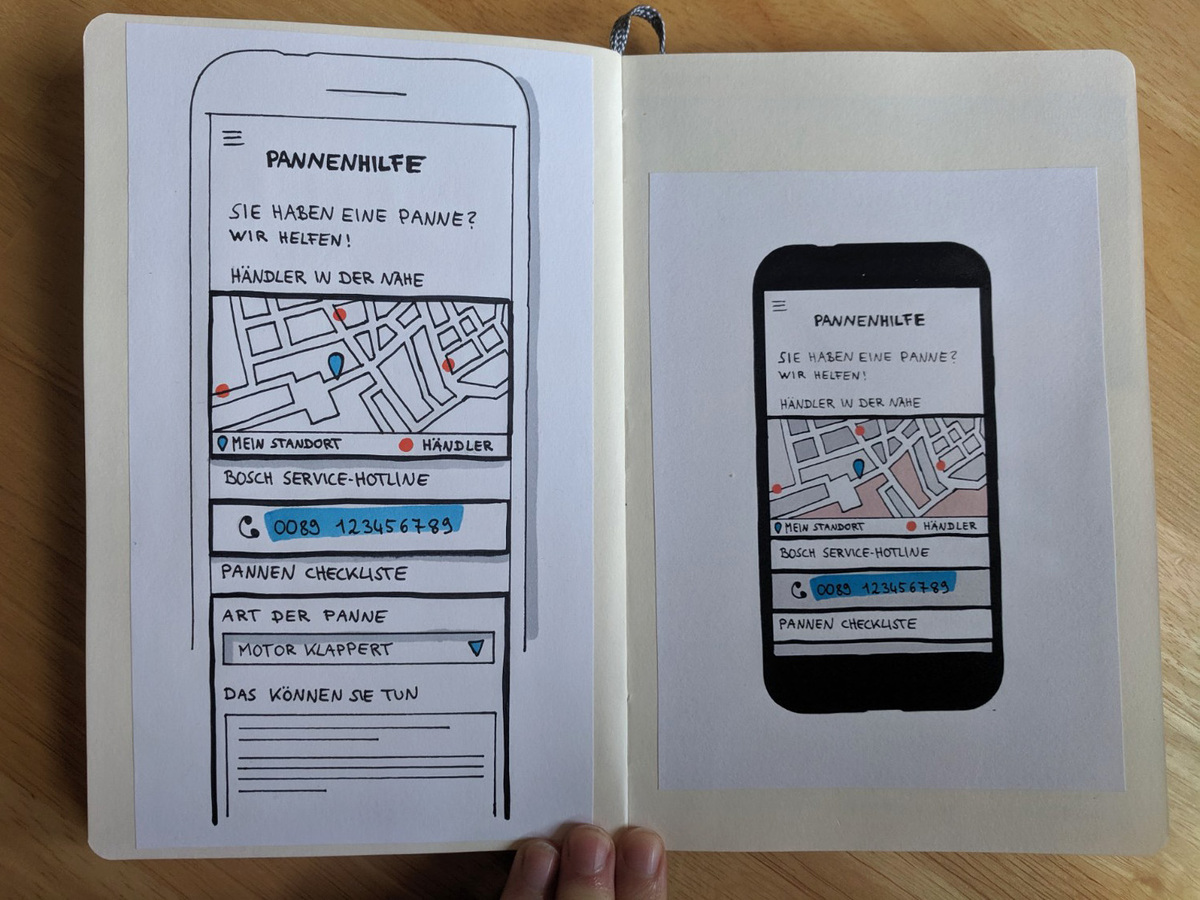 PANNENHILFE
SIE HABEN EINE PANNE?
WIR HELFEN!
HÄNDLER IN DER NÄHE
MEIN STANDORT HÄNDLER
BOSCH SERVICE-HOTLINE
0089 123456789
PANNEN CHECKLISTE
ART DER PANNE
MOTOR KLAPPERT
DAS KÖNNEN SIE TUN
PANNENHILFE
SIE HABEN EINE PANNE?
WIR HELFEN!
HÄNDLER IN DER NÄHE
MEIN STANDORT HÄNDLER
BOSCH SERVICE-HOTLINE
0089 123456789
PANNEN CHECKLISTE